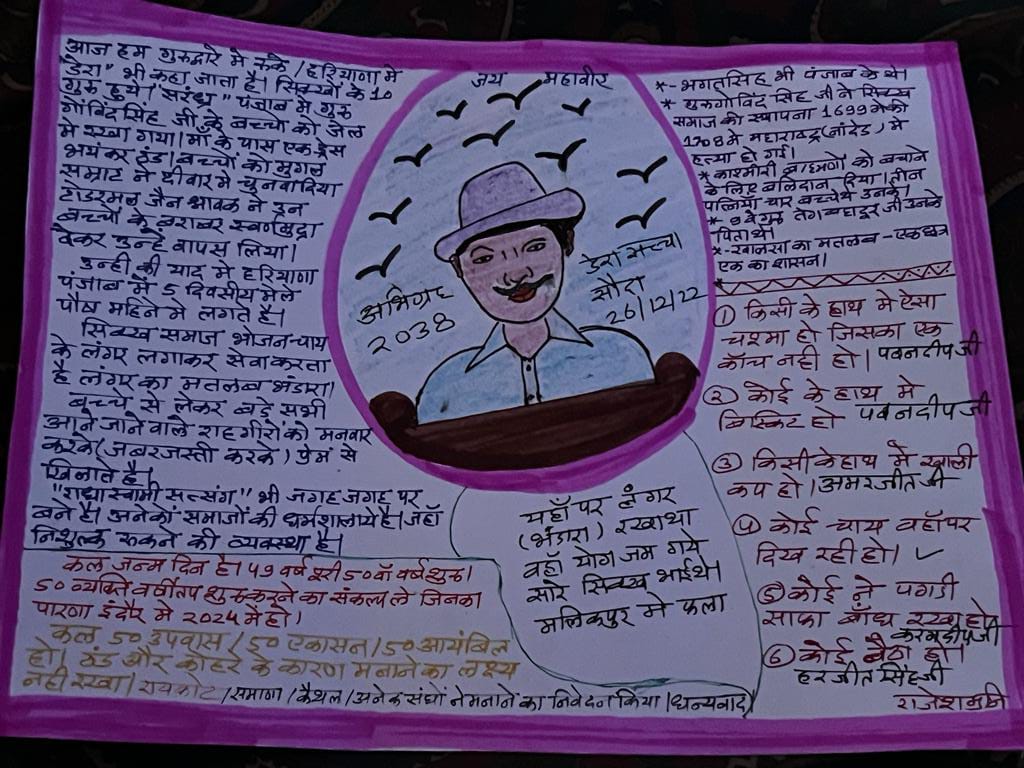 जय महावीर
आज हम गुरुद्वारे मे रुके / हरियाणा मे
"डेरा" भी कहा जाता है। सिक्खों के 10
गुरु हुये। "सरंध्र" पंजाब मे गुरु
गोविंदसिंह जी के बच्चो को जेल
मे रखा गया। माँ के पास एक ड्रेस
भयंकर ठंड। बच्चो को मुगल
सम्राट ने दीवार मे चुनवा दिया
टोडरमल जैन श्रावक ने उन
बच्चो के बराबर स्वर्णमुद्रा
देकर उन्हे वापस लिया।
उन्ही की याद मे हरियाणा
पंजाब मे 5 दिवसीय मेले
पौष महिने मे लगते है।
सिक्ख समाज भोजन-चाय
के लंगर लगाकर सेवा करता
है लंगर का मतलब भंडारा।
बच्चे से लेकर बडे सभी
आने जाने वाले राहगीरो को मनवार
करके (जबरजस्ती करके) प्रेम से
खिलाते है।
"राधास्वामी सत्संग" भी जगह जगह पर
बने है। अनेकों समाजों की धर्मशालाये है। जहाँ
निशुल्क रुकने की व्यवस्था है।
अभिग्रह
2038
डेरा सच्चा
सौदा
26/12/22
*- भगतसिंह भी पंजाब के थे।
* गुरुगोविंद सिंह जी ने सिक्ख
समाज की स्थापना 1699 मे की
1708 मे महाराष्ट्र (नांदेड) मे
हत्या हो गई।
* काश्मीरी ब्राह्मणो को बचाने
के लिए बलिदान दिया। तीन
पत्निया चार बच्चे थे उनके।
* 9 वे गुरु तेगबहादुर जी उनके
पिता थे।
*- खालसा का मतलब - एकछत्र
एक का शासन।
① किसी के हाथ मे ऐसा
चश्मा हो जिसका एक
काँच नही हो। पवनदीप जी
② कोई के हाथ मे
बिस्किट हो पवनदीप जी
③ किसी के हाथ मे खाली
कप हो। अमरजीत जी
④ कोई चाय वहाँ पर
दिख रही हो। ✓
⑤ कोई ने पगडी
साफा बाँध रखा हो
करमदीप जी
⑥ कोई बैठा हो।
हरजीत सिंह जी
राजेशमुनि
यहाँ पर लंगर
(भंडारा) रखा था
वहाँ योग जम गये
सारे सिक्ख भाई थे।
मलिकपुर मे फला
कल जन्म दिन है। 49 वर्ष पूरी 50वाँ वर्ष शुरु।
50 व्यक्ति वर्षीतप शुरु करने का संकल्प ले जिनका
पारणा इंदौर मे 2024 मे हो।
कल 50 उपवास / 50 एकासन / 50 आयंबिल
हो। ठंड और कोहरे के कारण मनाने का लक्ष्य
नही रखा। रायकोट / समाणा / कैथल / अनेक संघों ने मनाने का निवेदन किया। (धन्यवाद)